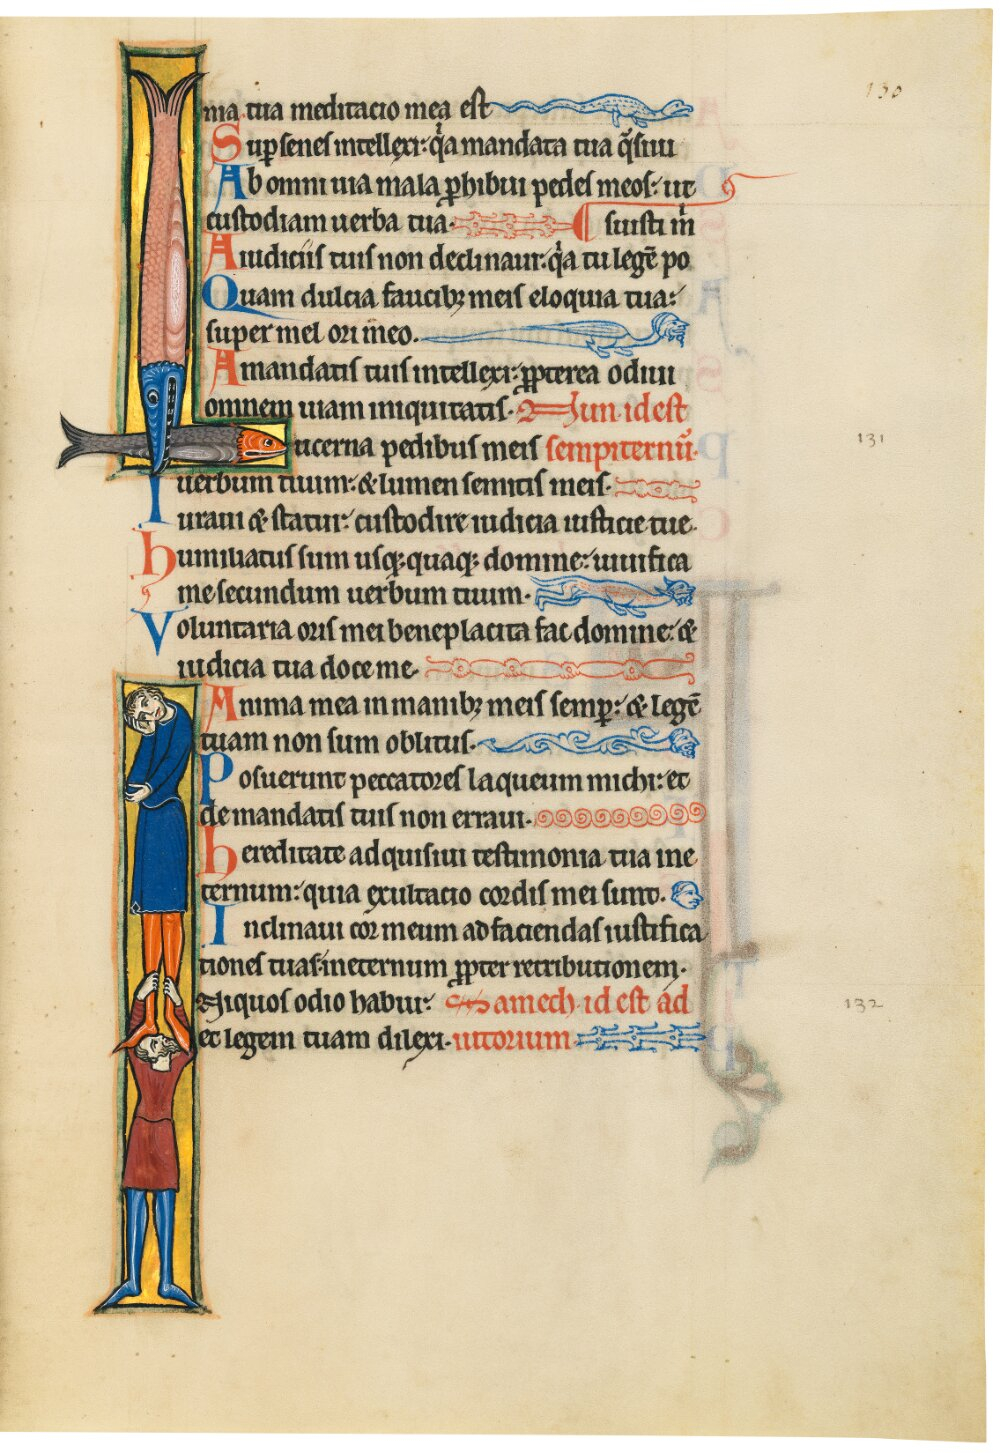 130
nia tua meditacio mea est
Sup senes intellexi: q̇a mandata tua q̃siui
Ab omni uia mala ꝓhibui pedes meos: ut
custodiam uerba tua. suisti m̃
A iudiciis tuis non declinaui: q̇a tu legẽ po
Quam dulcia faucibꝫ meis eloquia tua:
super mel ori meo.
A mandatis tuis intellexi: ꝓpterea odiui
omnem uiam iniquitatis. Nun. id est
Lucerna pedibus meis sempiternũ. 131
uerbum tuum: & lumen semitis meis.
Iuraui & statui: custodire iudicia iusticie tue.
humiliatus sum usqꝫquaqꝫ domine: uiuifica
me secundum uerbum tuum.
Voluntaria oris mei beneplacita fac domine: &
iudicia tua doce me.
Anima mea in manibꝫ meis semꝑ: & legẽ
tuam non sum oblitus.
Posuerunt peccatores laqueum michi: et
de mandatis tuis non erraui.
hereditate adquisiui testimonia tua ine
ternum: quia exultacio cordis mei sunt.
Inclinaui cor meum ad faciendas iustifica
tiones tuas: ineternum ꝓpter retributionem.
Iniquos odio habui: Samech. id est ad 132
et legem tuam dilexi. iutorium